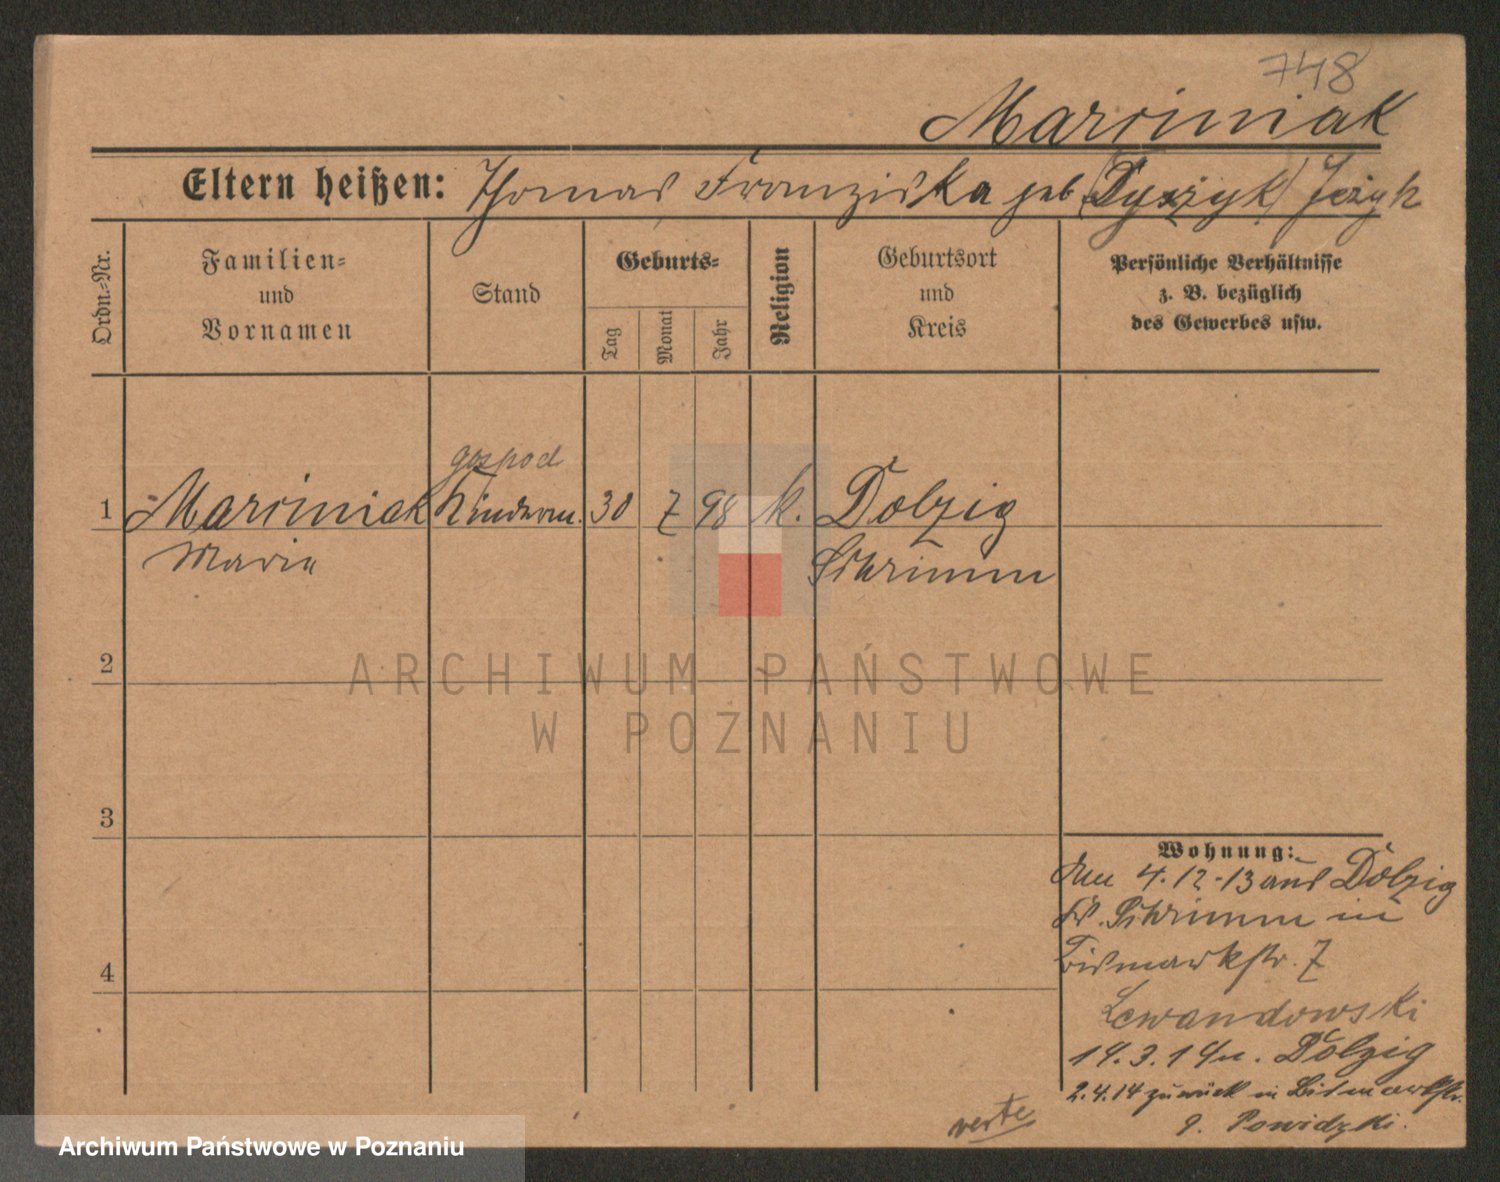 748
Marciniak
Eltern heißen: Thomas Franziska geb. (Dyszyk) Jeżyk
Ordn.-Nr.
Familien-
und
Vornamen
Stand
Geburts-
Tag
Monat
Jahr
Religion
Geburtsort
und
Kreis
Persönliche Verhältnisse
z. B. bezüglich
des Gewerbes usw.
gospod
1 Marciniak 30 7 98 k. Dolzig
Maria Schrimm
2
3
4
Wohnung:
den 4.12.13 aus Dolzig
Kr. Schrimm in
Bismarkstr. 7
Lewandowski
14.3.14 n. Dolzig
2.4.14 zurück in Bismarkstr.
9. Powidzki.
verte
ARCHIWUM PAŃSTWOWE
W POZNANIU
Archiwum Państwowe w Poznaniu